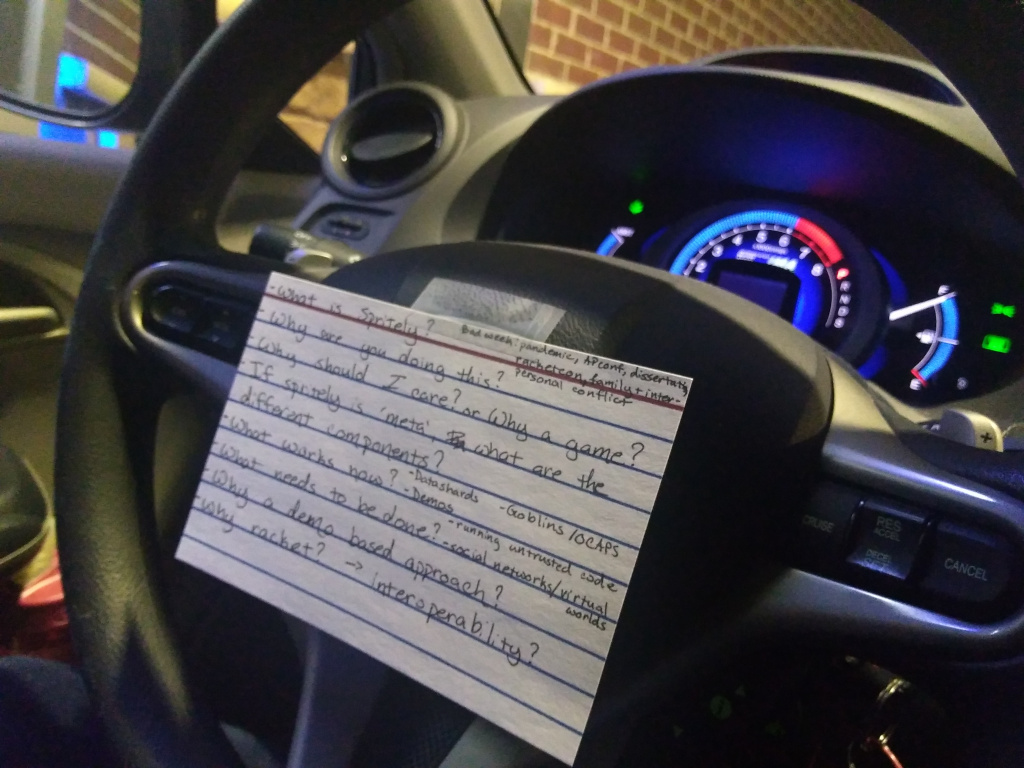 - What is Spritely?
Bad week: pandemic, APconf, dissertation,
racketcon, family + inter-
personal conflict
- Why are you doing this?
- Why should I care? or Why a game?
- If spritely is 'meta', what are the
different components?
- Goblins/OCAPS
- Datashards
- What works now?
- Demos
- running untrusted code
- What needs to be done?
- social networks/virtual
worlds
- Why a demo based approach?
- Why racket?
→ interoperability?
2 3 4 5 6 7 8
P
R
N
D
S
F
E
+
CRUISE
RES
ACCEL
DECEL
CANCEL